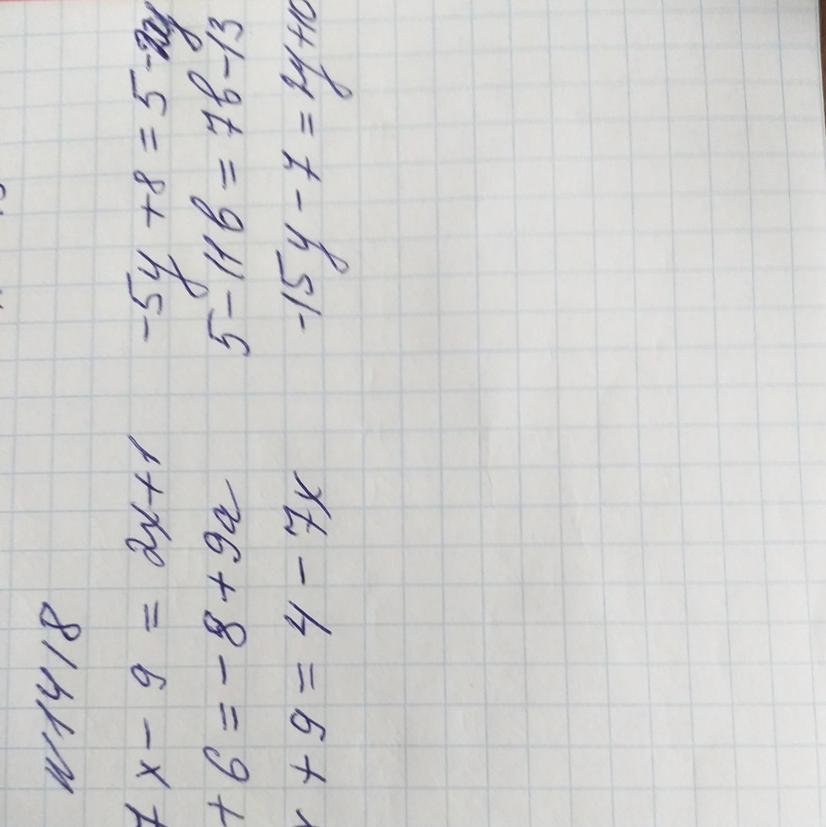 N 1418
7x - 9 = 2x + 1
-5y + 8 = 5 - 2y
+ 6 = -8 + 9a
5 - 11b = 7b - 13
+ 9 = 4 - 7x
-15y - 7 = 2y + 10